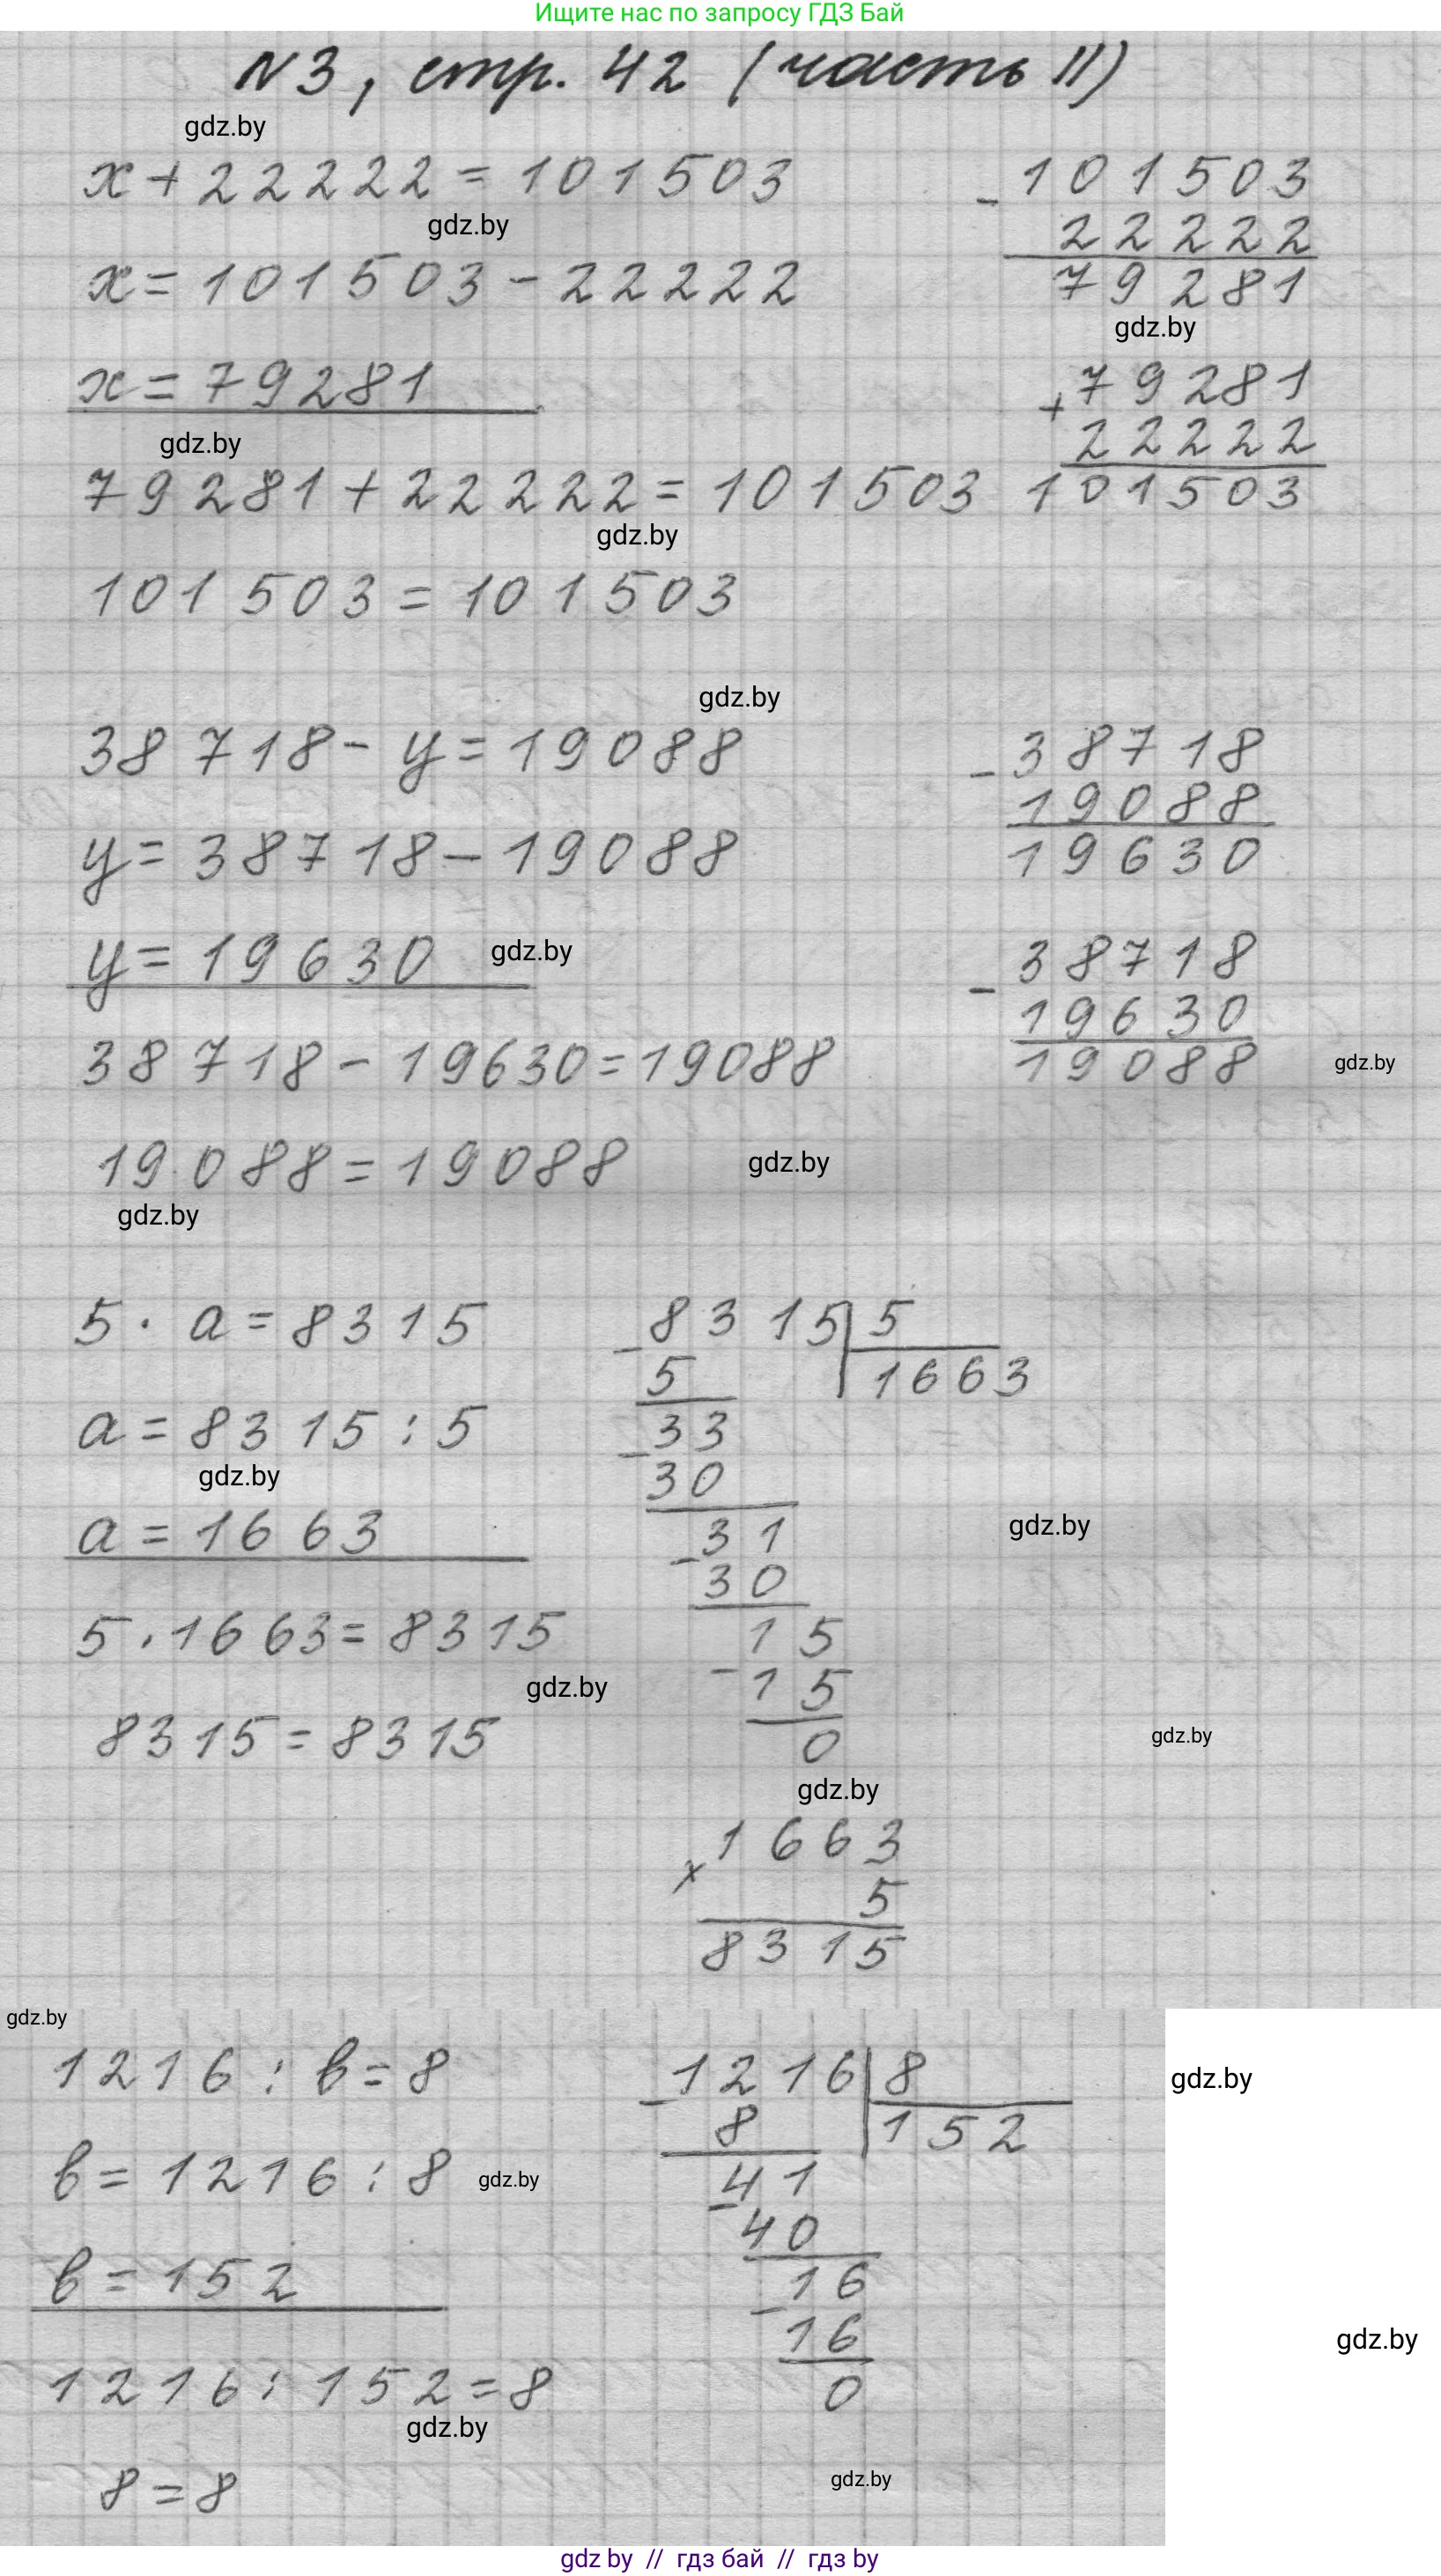 Ищите нас по запросу ГДЗ Бай
№3, стр. 42 (часть II)
gdz.by
x + 22222 = 101503
gdz.by
x = 101503 - 22222
x = 79281
gdz.by
79281 + 22222 = 101503
gdz.by
101503 = 101503
- 101503
22222
79281
gdz.by
+ 79281
22222
101503
gdz.by
38718 - y = 19088
y = 38718 - 19088
y = 19630
gdz.by
38718 - 19630 = 19088
19088 = 19088
gdz.by
gdz.by
- 38718
19088
19630
- 38718
19630
19088
gdz.by
5 · a = 8315
a = 8315 : 5
gdz.by
a = 1663
5 · 1663 = 8315
gdz.by
8315 = 8315
- 8315 | 5
5 1663
- 33
30
- 31
30
15
- 15
0
gdz.by
gdz.by
gdz.by
x 1663
5
8315
gdz.by
1216 : b = 8
b = 1216 : 8
gdz.by
b = 152
1216 : 152 = 8
gdz.by
8 = 8
- 1216 | 8
8 152
- 41
40
- 16
16
0
gdz.by
gdz.by
gdz.by
gdz by // гдз бай // гдз by